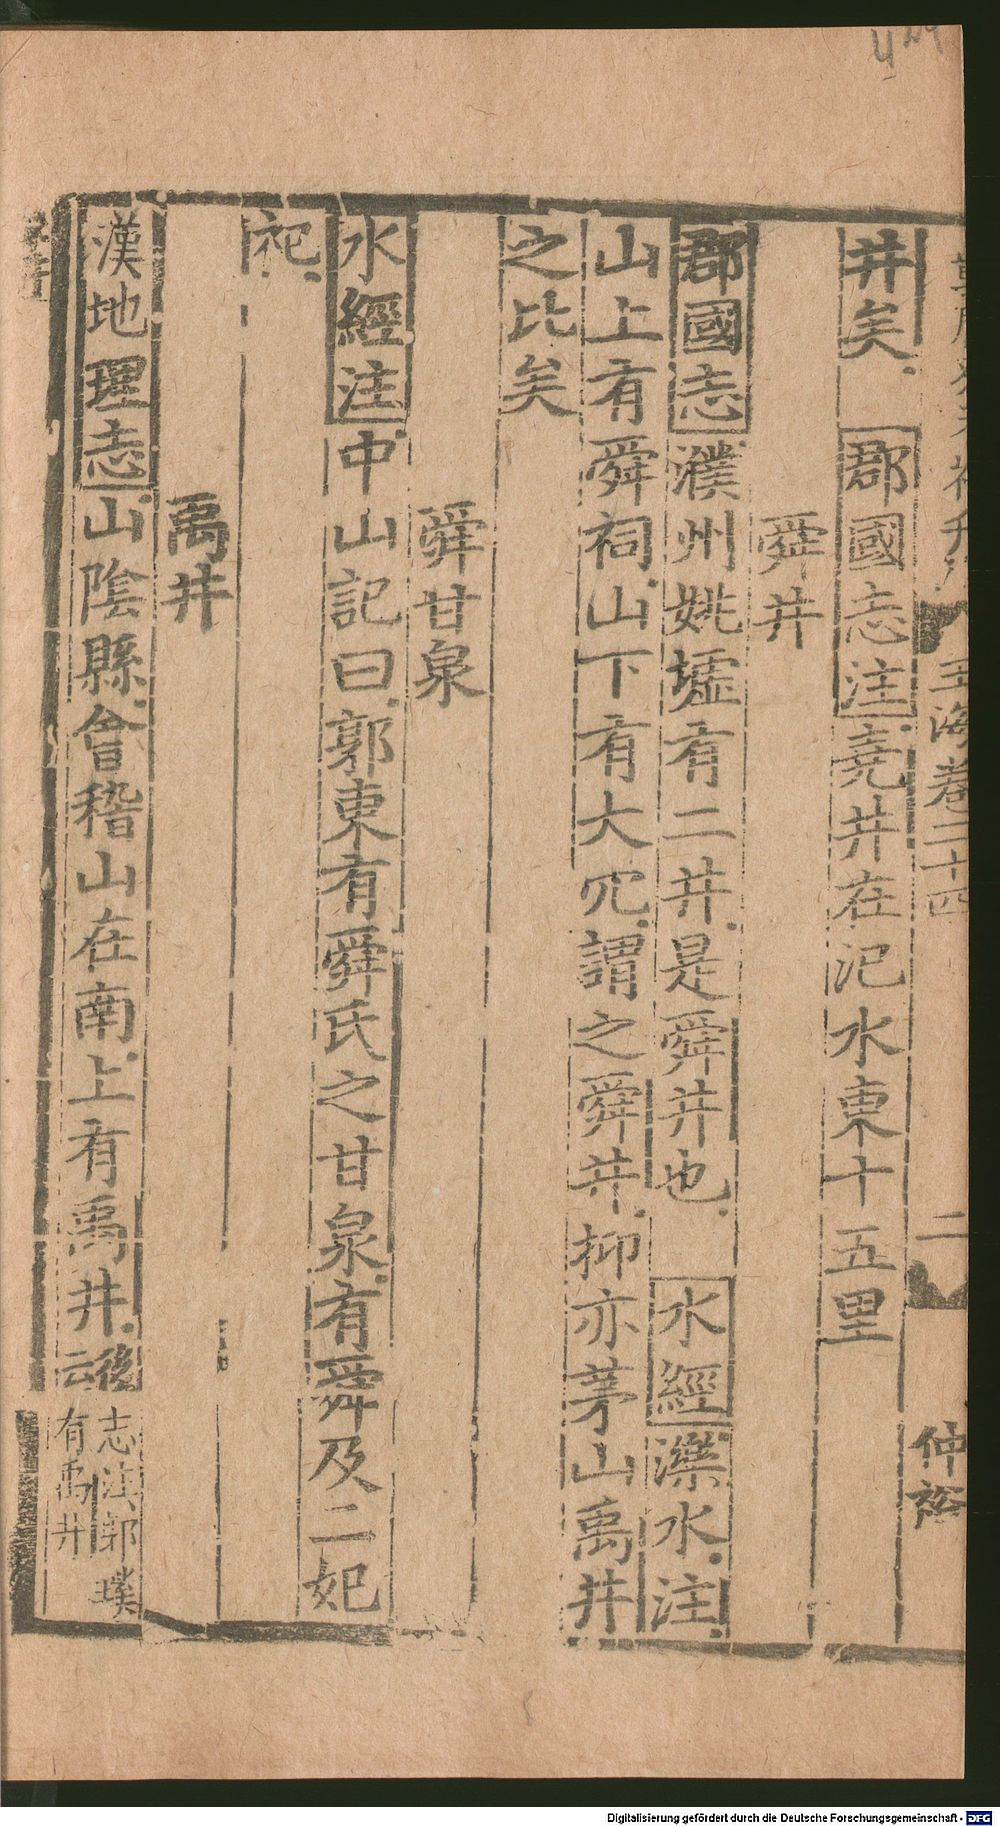 玉海卷二十四
二
仲裕
井矣 郡國志注堯井在汜水東十五里
舜井
郡國志濮州姚墟有二井是舜井也 水經濼水注
山上有舜祠山下有大冗謂之舜井抑亦茅山禹井
之比矣
舜甘泉
水經注中山記曰郭東有舜氏之甘泉有舜及二妃
祀
禹井
漢地理志山陰縣會稽山在南上有禹井後
云
志注郭璞
有禹井
Digitalisierung gefördert durch die Deutsche Forschungsgemeinschaft - DFG